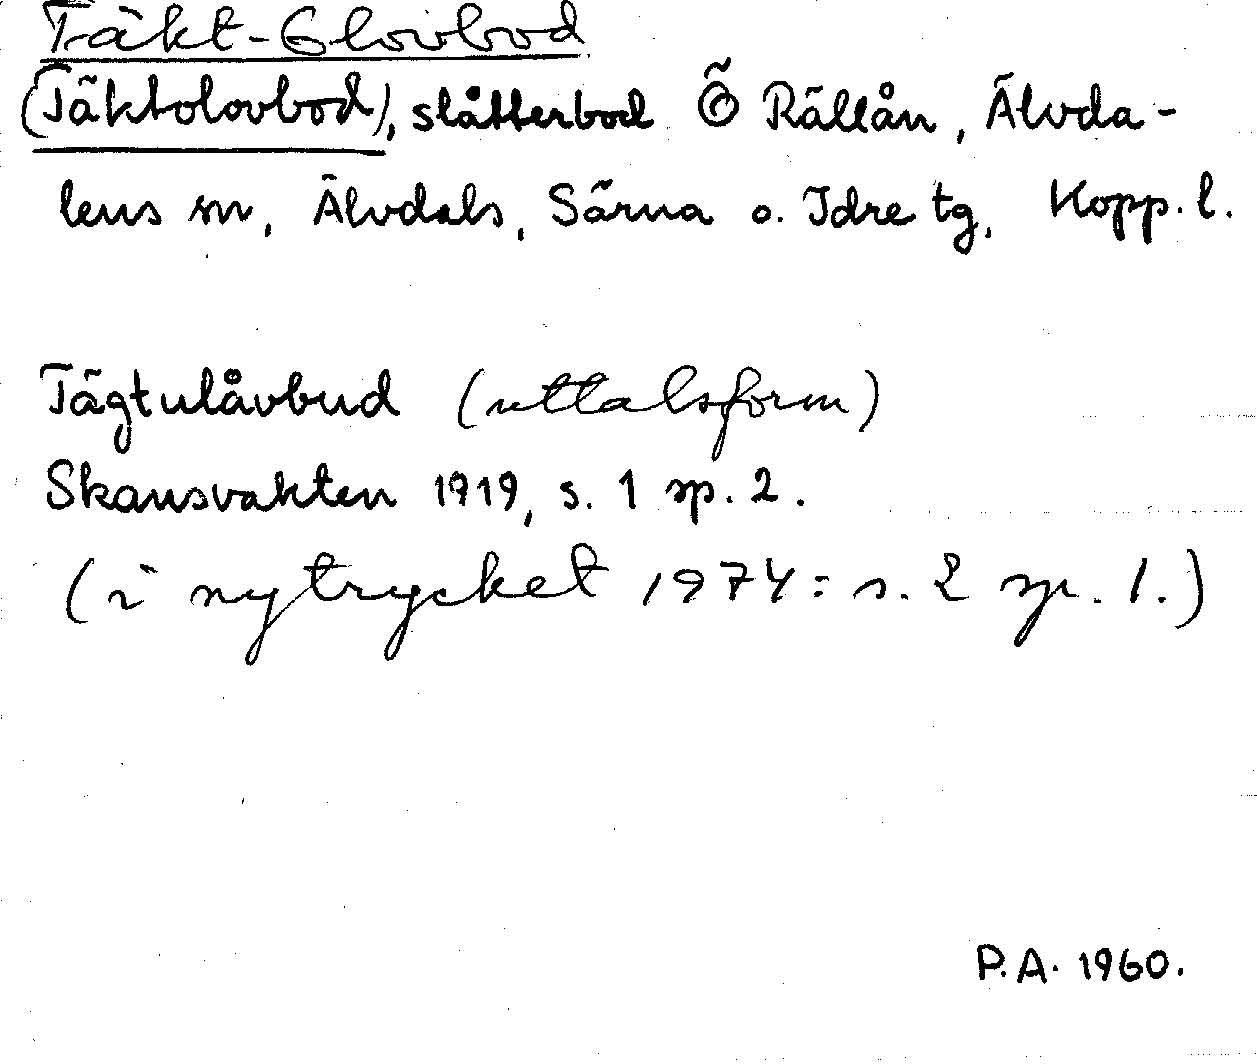 Täkt-Olovbod
(Täktolovbod), slåtterbod Ö Rällån, Älvda-
lens sn, Älvdals, Särna o. Idre tg, Kopp. l.
Tägtulåvbud (uttalsform)
Skansvakten 1919, s. 1 sp. 2.
(i nytrycket 1974: s. 2 sp. 1.)
P.A. 1960.